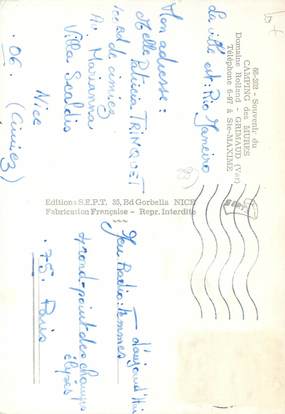 86-202 - Souvenir du
CAMPING des MURES
Domaine Rolland - GRIMAUD (Var)
Téléphone 6-97 à Ste-MAXIME
La ville est: Rio Janeiro
Mon adresse:
Melle Patricia TRINQUET
Av. Marianna
Villa Scaldis
Nice
.06. (Cimiez)
Editions S.E.P.T. 35, Bd Gorbella NICE
Fabrication Française - Repr. Interdite
Jeu Radio: femmes
d'aujourd'hui
rond-point des champs
élysés
.75. Paris